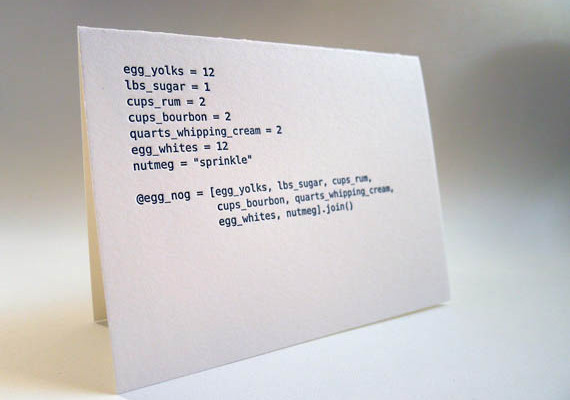 egg_yolks = 12
lbs_sugar = 1
cups_rum = 2
cups_bourbon = 2
quarts_whipping_cream = 2
egg_whites = 12
nutmeg = "sprinkle"
@egg_nog = [egg_yolks, lbs_sugar, cups_rum,
cups_bourbon, quarts_whipping_cream,
egg_whites, nutmeg].join()